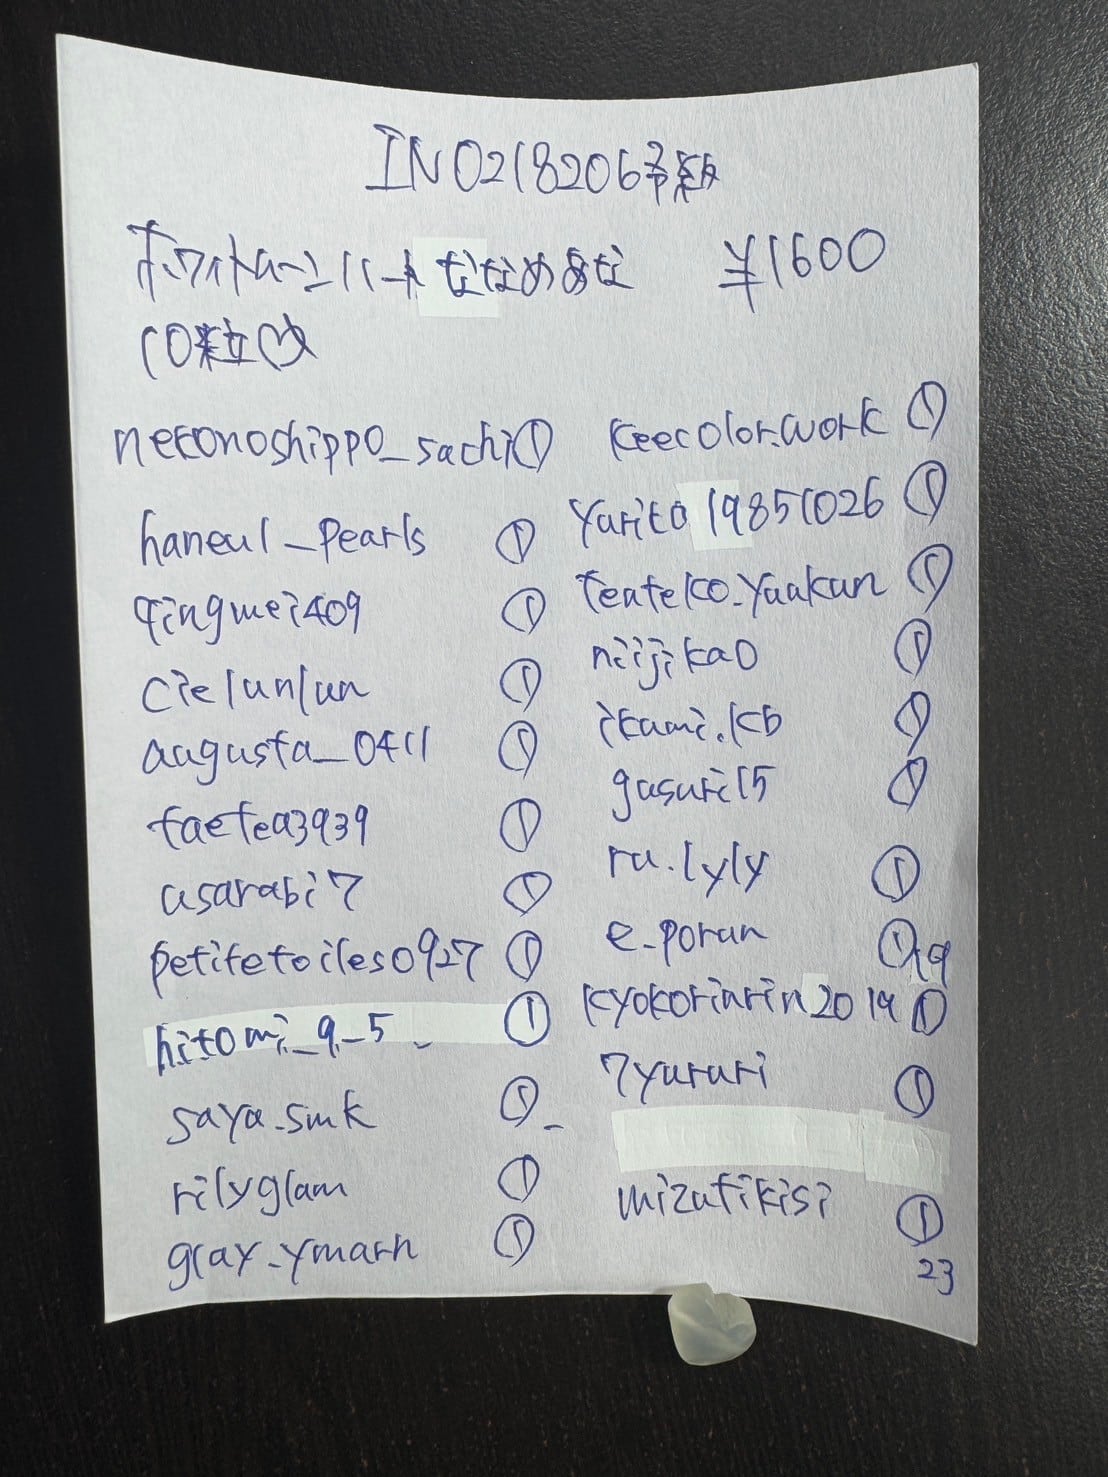 INO218206予約
ホワイトムーンハート ななめあな ¥1600
10粒
neconoshippo_sachi ①
haneul_pearls ①
qingmei409 ①
cielunlun ①
augusta_0411 ①
taetea3939 ①
asarabi7 ①
petitetoiles0927 ①
hitomi_9_5 ①
saya_smk ①
rilyglam ①
glay_ymarn ①
keecolor.work ①
yurito19851026 ①
teateko.yaakun ①
niijikao ①
ikumi.kb ①
gusuri15 ①
ru.lyly ①
e_porun ①
19
kyokorinrin2014 ①
7yururi ①
mizutikisi ①
23